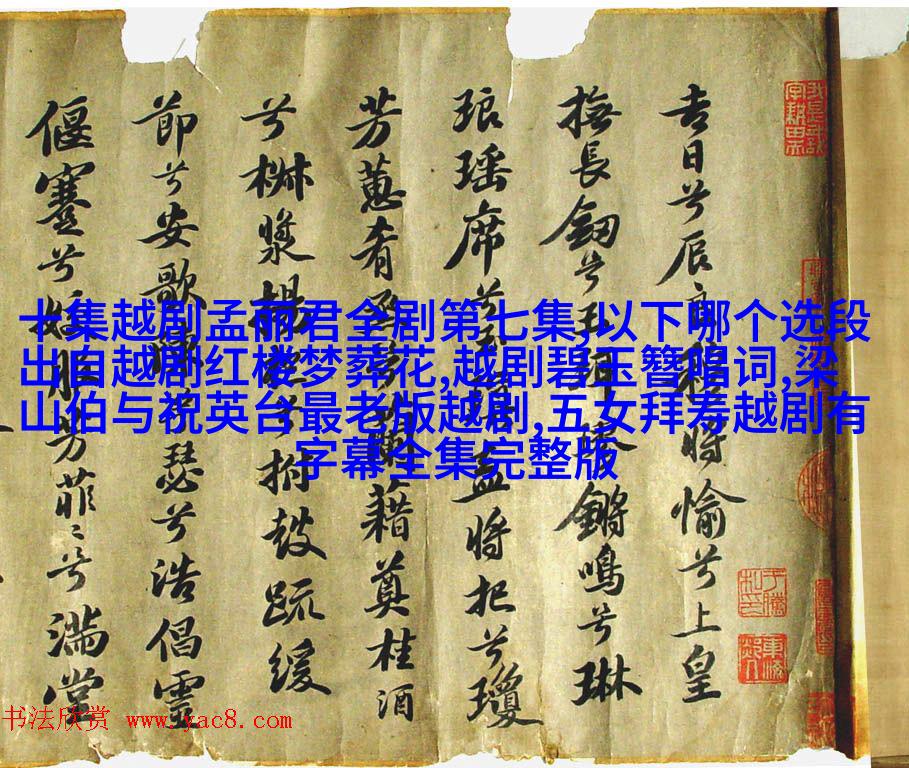 十集越剧孟丽君全剧第七集,以下哪个选段
出自越剧红楼梦葬花,越剧碧玉簪唱词,梁
山伯与祝英台最老版越剧,五女拜寿越剧有
字幕全集完整版
吉日兮辰將愉兮上皇
撫長劔兮鏘鳴兮琳
琅瑶席兮盍將把兮瓊
芳蕙肴蘭藉奠桂酒
兮椒漿揚兮拊鼓疏緩
節兮安歌瑟兮浩倡靈
偃蹇兮姣服芳菲兮滿堂
书法欣赏 www.yac8.com